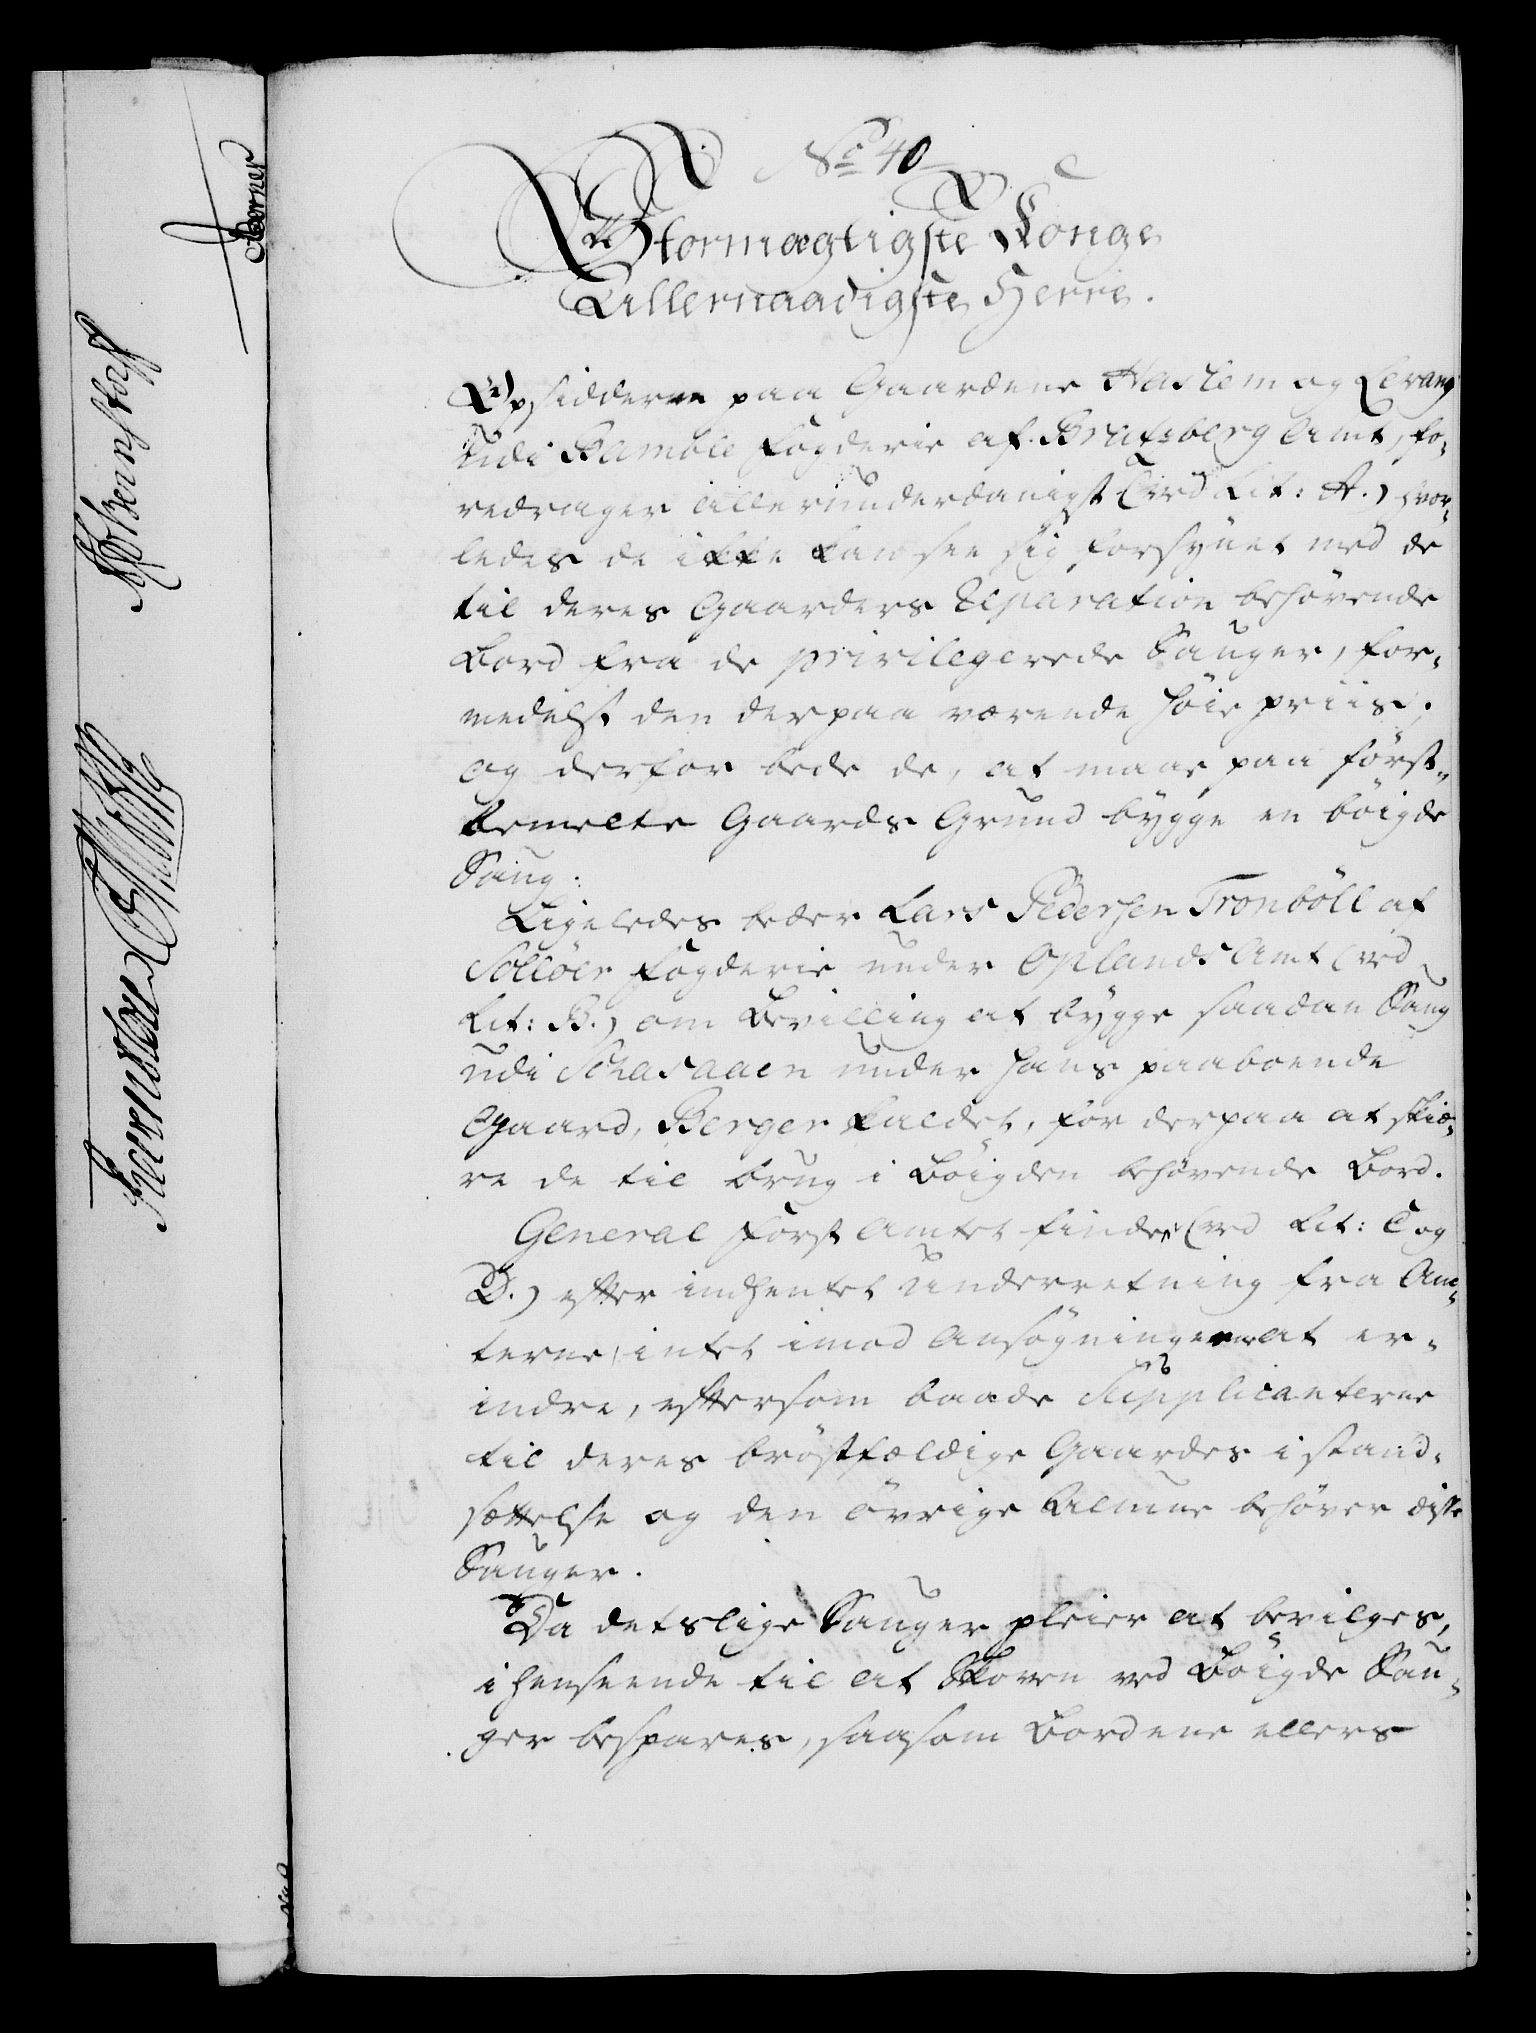 No. 40
Stormægtigste Konge
Allernaadigste Herre.
Opsidderne paa Gaardene Haslem og Levang
udi Bamble Fogderie af Bratsberg Amt, fo-
redrager allerunderdanigst (ved Lit: A.) hvor-
ledes de ikke kan see sig forsynet med de
til deres Gaarders Reparation behøvende
Bord fra de privilegerede Sauger, for-
medelst den derpaa værende høie priis;
og derfor bede de, at maae paa først-
bemelte Gaards Grund bygge en böigde
Saug.
Ligeledes beder Lars Pedersen Tronböll af
Solløer Fogderie under Oplands Amt (ved
Lit: B.) om Bevilling at bygge saadan Saug
udi Schasaaen under hans paaboende
Gaard, Berger kaldet, for derpaa at skiæ-
re de til brug i Böigden behøvende Bord.
General Forst Amtet finder (ved Lit: C og
D.) efter indhentet Underretning fra Am-
terne, intet imod Ansøgningerne at er-
indre, eftersom baade Supplicanterne
til deres bröstfældige Gaardes i stand-
sættelse og den övrige Almue behøver disse
Sauger.
Da detslige Sauger pleier at bevilges,
i henseende til at Skoven ved Böigde Sau-
ger bespares, saasom Bordene ellers